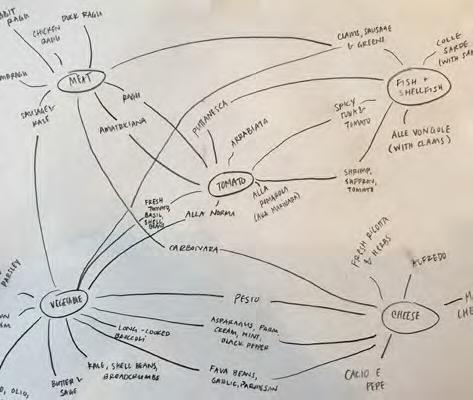 RAGU
DUCK RAGU
CHICKEN
RAGU
MEAT
SAUSAGE &
KALE
RAGU
AMATRICIANA
CLAMS, SAUSAGE
& GREENS
COLLE
SARDE
(WITH
FISH +
SHELLFISH
ALLE VONGOLE
(WITH CLAMS)
PUTTANESCA
ARRABIATA
SPICY
TUNA &
TOMATO
TOMATO
SHRIMP,
SAFFRON,
TOMATO
ALLA
(AKA MARINARA)
FRESH
TOMATO,
BASIL,
SHELL
BEANS
ALLA NORMA
CARBONARA
FRESH RICOTTA
& HERBS
ALFREDO
PARSLEY
VEGETABLE
PESTO
CHEESE
ASPARAGUS, PARM
CREAM, MINT,
BLACK PEPPER
LONG-COOKED
BROCCOLI
KALE, SHELL BEANS,
BREADCRUMBS
BUTTER &
SAGE
FAVA BEANS,
GARLIC, PARMESAN
CACIO E
PEPE
OLIO,